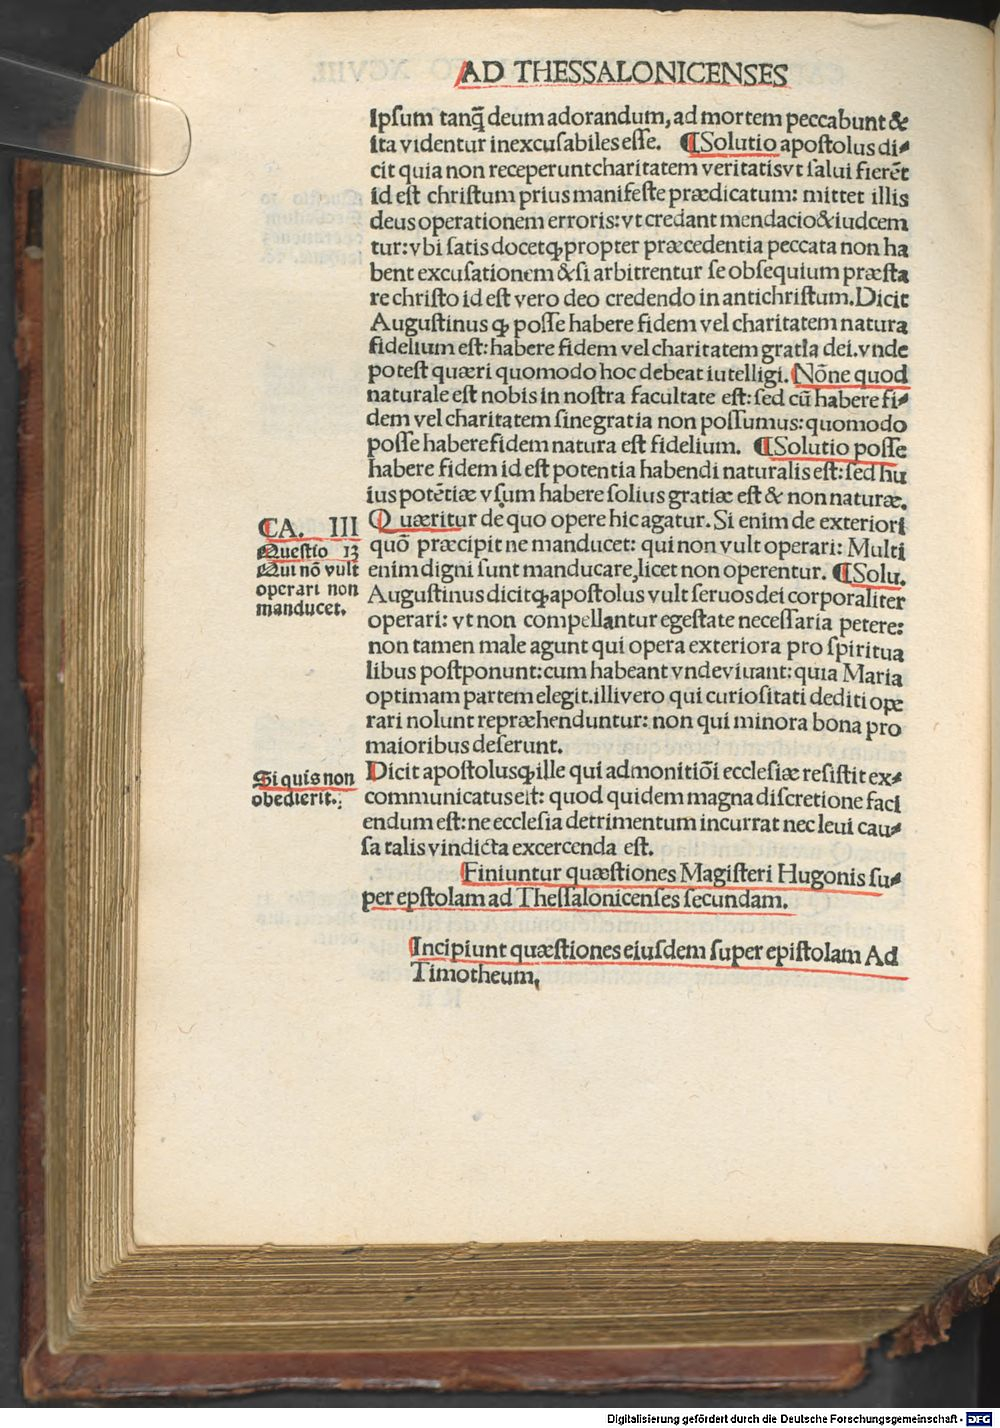 AD THESSALONICENSES
Ipsum tanq̃ deum adorandum, ad mortem peccabunt &
ita videntur inexcusabiles esse. ¶Solutio apostolus di⸗
cit quia non receperunt charitatem veritatis vt salui fierẽt
id est christum prius manifeste prædicatum: mittet illis
deus operationem erroris: vt credant mendacio & iudcem
tur: vbi satis docet ꝙ propter præcedentia peccata non ha
bent excusationem & si arbitrentur se obsequium præsta
re christo id est vero deo credendo in antichristum. Dicit
Augustinus ꝙ posse habere fidem vel charitatem natura
fidelium est: habere fidem vel charitatem gratia dei. vnde
potest quæri quomodo hoc debeat iutelligi. Nõne quod
naturale est nobis in nostra facultate est: sed cũ habere fi⸗
dem vel charitatem sine gratia non possumus: quomodo
posse habere fidem natura est fidelium. ¶Solutio posse
habere fidem id est potentia habendi naturalis est: sed hu
ius potẽtiæ vsum habere solius gratiæ est & non naturæ.
CA. III
Questio 13
Qui nõ vult
operari non
manducet.
Quæritur de quo opere hic agatur. Si enim de exteriori
quõ præcipit ne manducet: qui non vult operari: Multi
enim digni sunt manducare, licet non operentur. ¶Solu.
Augustinus dicit ꝙ apostolus vult seruos dei corporaliter
operari: vt non compellantur egestate necessaria petere:
non tamen male agunt qui opera exteriora pro spiritua
libus postponunt: cum habeant vnde viuant: quia Maria
optimam partem elegit. illi vero qui curiositati dediti ope
rari nolunt repræhenduntur: non qui minora bona pro
maioribus deserunt.
Si quis non
obedierit.
Dicit apostolus ꝙ ille qui admonitiõi ecclesiæ resistit ex⸗
communicatus eit: quod quidem magna discretione faci
endum est: ne ecclesia detrimentum incurrat nec leui cau⸗
sa talis vindicta excercenda est.
Finiuntur quæstiones Magisteri Hugonis su⸗
per epstolam ad Thessalonicenses secundam.
Incipiunt quæstiones eiusdem super epistolam Ad
Timotheum,
Digitalisierung gefördert durch die Deutsche Forschungsgemeinschaft - DFG